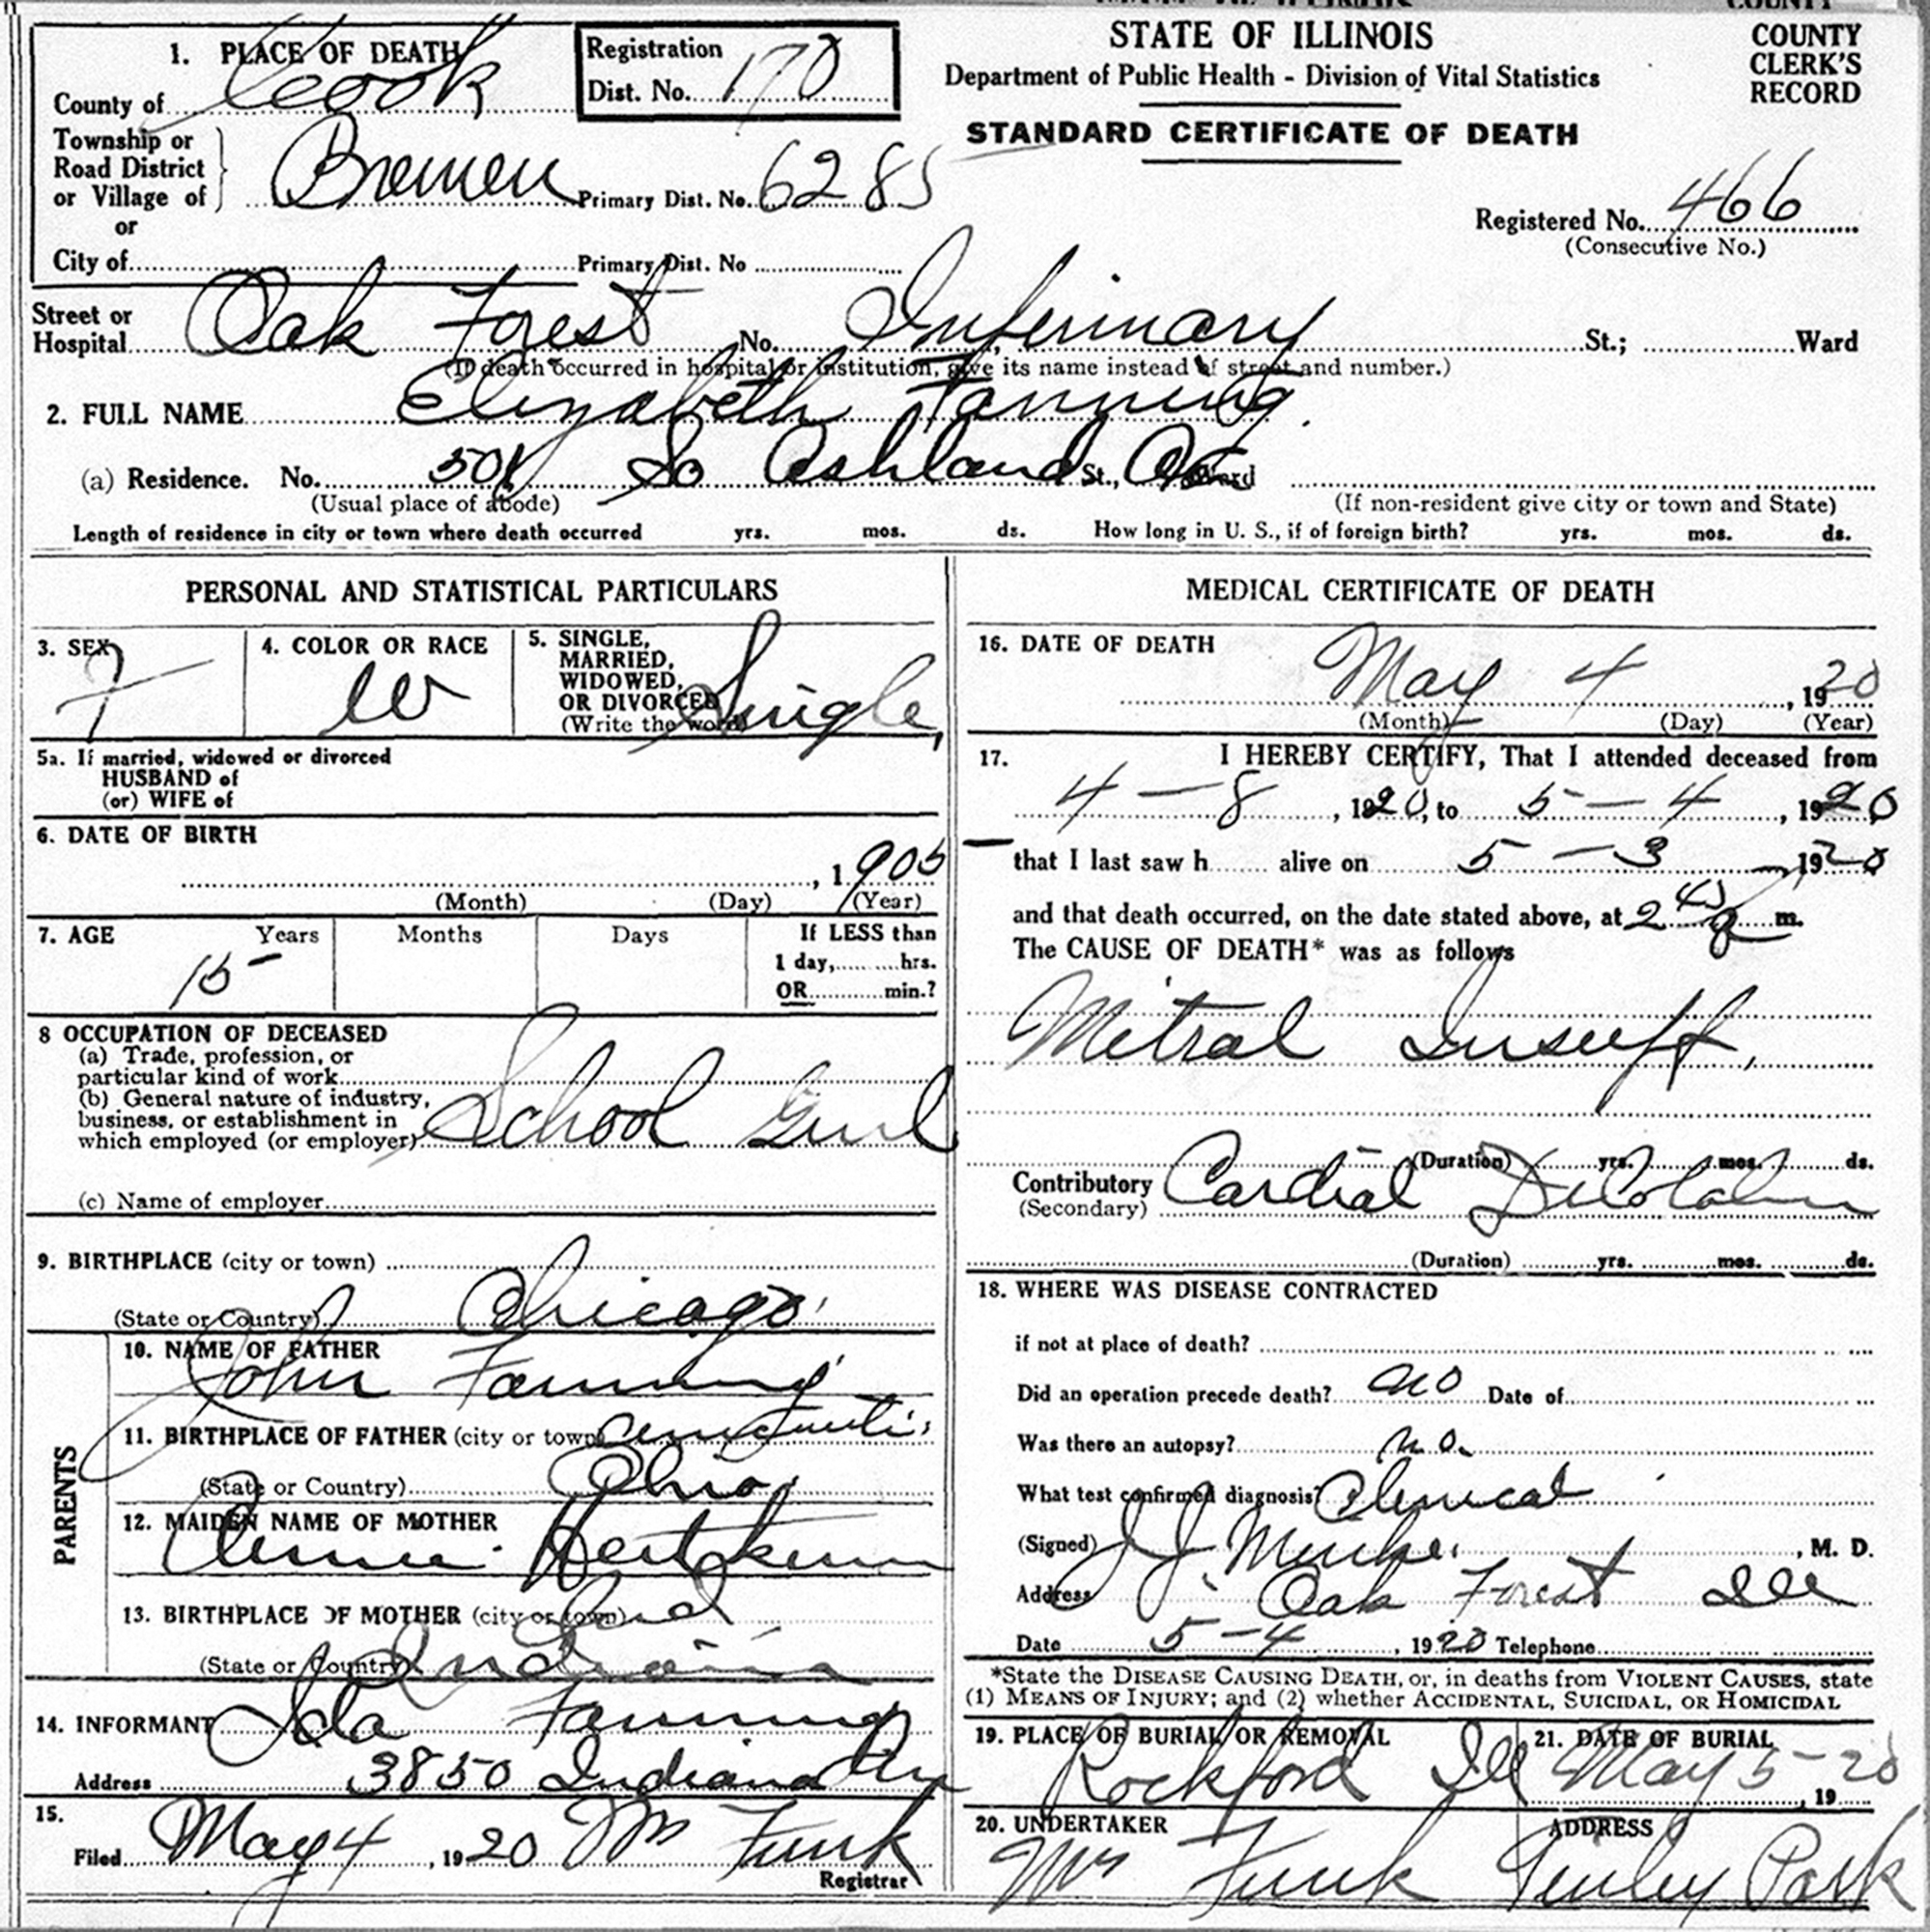 STATE OF ILLINOIS
Department of Public Health - Division of Vital Statistics
STANDARD CERTIFICATE OF DEATH
COUNTY
CLERK'S
RECORD
1. PLACE OF DEATH
County of Cook
Registration
Dist. No. 170
Township or
Road District
or Village of
or
Bremen Primary Dist. No. 6285
City of Primary Dist. No
Registered No. 466
(Consecutive No.)
Street or
Hospital Oak Forest No. Infirmary St.; Ward
(If death occurred in hospital or institution, give its name instead of street and number.)
2. FULL NAME Elizabeth Fanning.
(a) Residence. No. So Ashland St., Ward
(Usual place of abode) (If non-resident give city or town and State)
Length of residence in city or town where death occurred yrs. mos. ds. How long in U. S., if of foreign birth? yrs. mos. ds.
PERSONAL AND STATISTICAL PARTICULARS
3. SEX
F
4. COLOR OR RACE
W
5. SINGLE,
MARRIED,
WIDOWED,
OR DIVORCED
(Write the word)
Single
5a. If married, widowed or divorced
HUSBAND of
(or) WIFE of
6. DATE OF BIRTH
, 1905
(Month) (Day) (Year)
7. AGE Years Months Days If LESS than
15
1 day, hrs.
OR min.?
8 OCCUPATION OF DECEASED
(a) Trade, profession, or
particular kind of work
(b) General nature of industry,
business, or establishment in
which employed (or employer) School Girl
(c) Name of employer
9. BIRTHPLACE (city or town)
(State or Country) Chicago
PARENTS
10. NAME OF FATHER
John Fanning
11. BIRTHPLACE OF FATHER (city or town)
(State or Country) Ohio
12. MAIDEN NAME OF MOTHER
13. BIRTHPLACE OF MOTHER (city or town) Ind
(State or Country) Indiana
14. INFORMANT Ida Fanning
Address 3850 Indiana Av
15.
Filed May 4, 1920 Wm Funk
Registrar
MEDICAL CERTIFICATE OF DEATH
16. DATE OF DEATH
May 4, 1920
(Month) (Day) (Year)
17. I HEREBY CERTIFY, That I attended deceased from
4-8, 1920, to 5-4, 1920
that I last saw h alive on 5-3, 1920
and that death occurred, on the date stated above, at m.
The CAUSE OF DEATH* was as follows
Mitral Insuff,
(Duration) yrs. mos. ds.
Contributory
(Secondary)
Cardial
(Duration) yrs. mos. ds.
18. WHERE WAS DISEASE CONTRACTED
if not at place of death?
Did an operation precede death? no Date of
Was there an autopsy? no.
What test confirmed diagnosis? Clinical
(Signed) J J , M. D.
Address Oak Forest Ill
Date 5-4, 1920 Telephone
*State the DISEASE CAUSING DEATH, or, in deaths from VIOLENT CAUSES, state
(1) MEANS OF INJURY; and (2) whether ACCIDENTAL, SUICIDAL, OR HOMICIDAL
19. PLACE OF BURIAL OR REMOVAL
Rockford Ill
21. DATE OF BURIAL
May 5-20
, 19
20. UNDERTAKER
Wm Funk
ADDRESS
Tinley Park